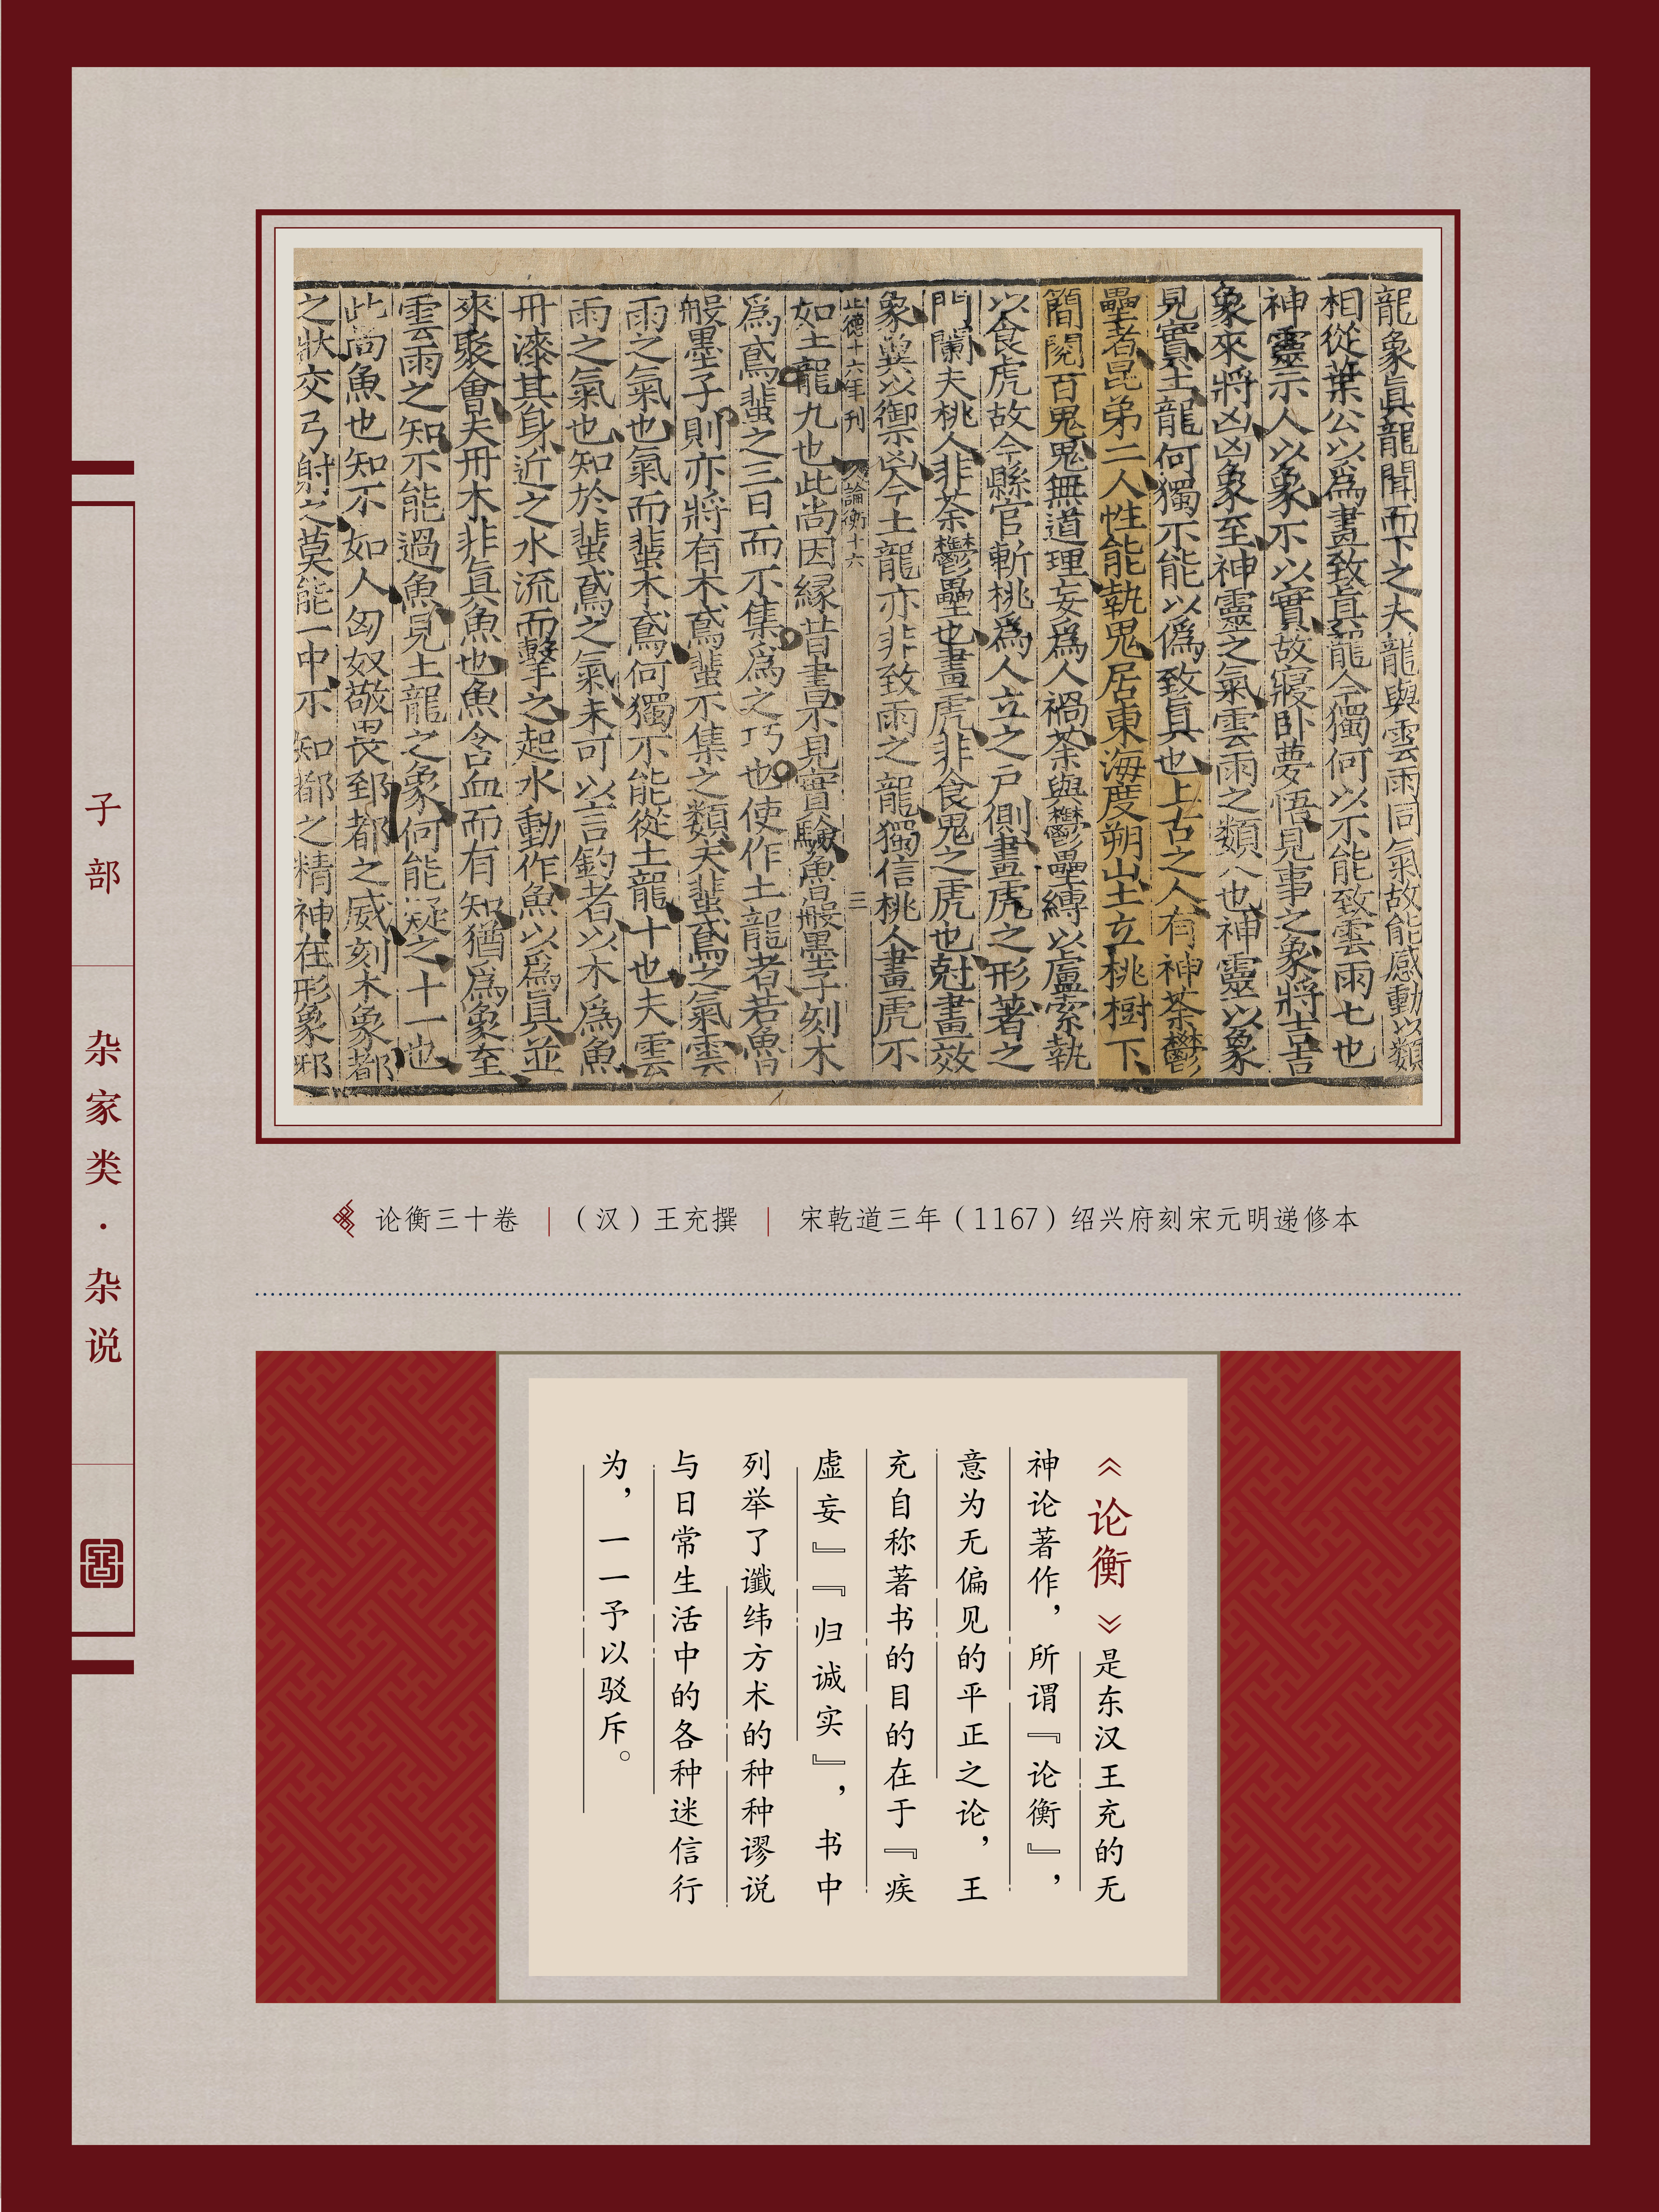 龍象眞龍聞而下之夫龍與雲雨同氣故能感動以類
相從葉公以爲畫致眞龍今獨何以不能致雲雨七也
神靈示人以象不以實故寢臥夢悟見事之象將吉吉
象來將凶凶象至神靈之氣雲雨之類八也神靈以象
見實土龍何獨不能以僞致眞也上古之人有神荼鬱
壘者昆弟二人性能執鬼居東海度朔山上立桃樹下
簡閱百鬼鬼無道理妄爲人禍荼與鬱壘縛以盧索執
以食虎故今縣官斬桃爲人立之戶側畫虎之形著之
門闌夫桃人非荼鬱壘也畫虎非食鬼之虎也尅畫效
象冀以禦凶今土龍亦非致雨之龍獨信桃人畫虎不
正德十六年刊
論衡十六
三
如土龍九也此尚因緣昔書不見實驗魯般墨子刻木
爲鳶蜚之三日而不集爲之巧也使作土龍者若魯
般墨子則亦將有木鳶蜚不集之類夫蜚鳶之氣雲
雨之氣也氣而蜚木鳶何獨不能從土龍十也夫雲
雨之氣也知於蜚鳶之氣未可以言釣者以木爲魚
丹漆其身近之水流而擊之起水動作魚以爲眞並
來聚會夫丹木非眞魚也魚含血而有知猶爲象至
雲雨之知不能過魚見土龍之象何能疑之十一也
此尚魚也知不如人匈奴敬畏郅都之威刻木象都
之狀交弓射之莫能一中不知都之精神在形象邪
论衡三十卷 | （汉）王充撰 | 宋乾道三年（1167）绍兴府刻宋元明递修本
子部
杂家类·杂说
《论衡》是东汉王充的无
神论著作，所谓『论衡』，
意为无偏见的平正之论，王
充自称著书的目的在于『疾
虚妄』『归诚实』，书中
列举了谶纬方术的种种谬说
与日常生活中的各种迷信行
为，一一予以驳斥。